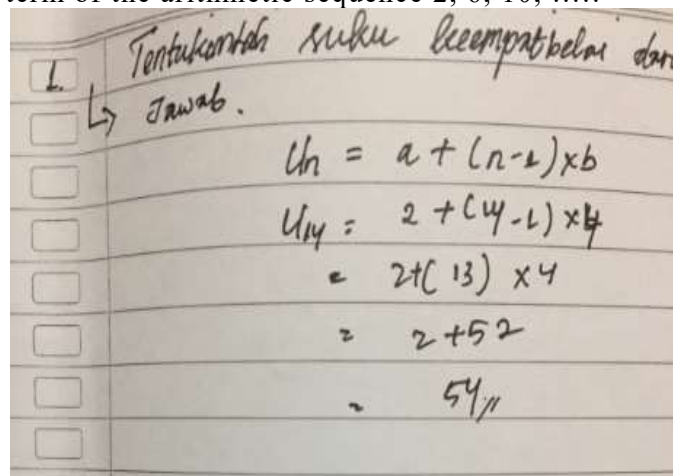 term of the arithmetic sequence 2, 6, 10, .....
1. Tentukanlah suku keempatbelas dari
↳ Jawab.
Un = a + (n-1)xb
U14 = 2 + (14-1) x4
= 2+( 13) x4
= 2+52
= 54//